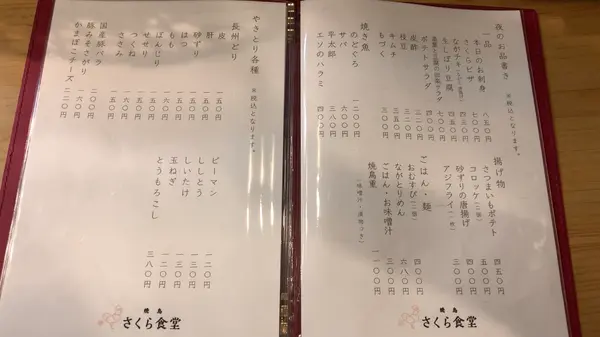 夜のお品書き
※税込となります。
一品
本日のお刺身 八五〇円
さくらピザ 七〇〇円
ながチキ
もしぼり豆腐
ポテトサラダ
皮酢
枝豆
キムチ 三五〇円
もづく 三〇〇円
焼き魚
のどぐろ 一二〇〇円
サバ 六〇〇円
平太郎 三八〇円
エソのハラミ 四〇〇円
揚げ物
さつまいもポテト 四五〇円
コロッケ(二個) 五〇〇円
砂ずりの唐揚げ
アジフライ(一枚) 三〇〇円
ごはん・麺
おむすび(二個) 四〇〇円
ながとりめん 六八〇円
ごはん・お味噌汁 三〇〇円
焼鳥重 一一〇〇円
(味噌汁・漬物つき)
焼鳥
さくら食堂
やきとり各種
※税込となります。
長州どり
皮 一五〇円
肝 一五〇円
砂ずり 一五〇円
はつ 一五〇円
もも
せせり
ぼんじり
つくね 一六〇円
ささみ 一五〇円
国産豚バラ 二〇〇円
豚みそさがり 一六〇円
かまぼこチーズ 二二〇円
ピーマン 一二〇円
ししとう 一三〇円
しいたけ 一三〇円
玉ねぎ 一三〇円
とうもろこし 三八〇円
焼鳥
さくら食堂